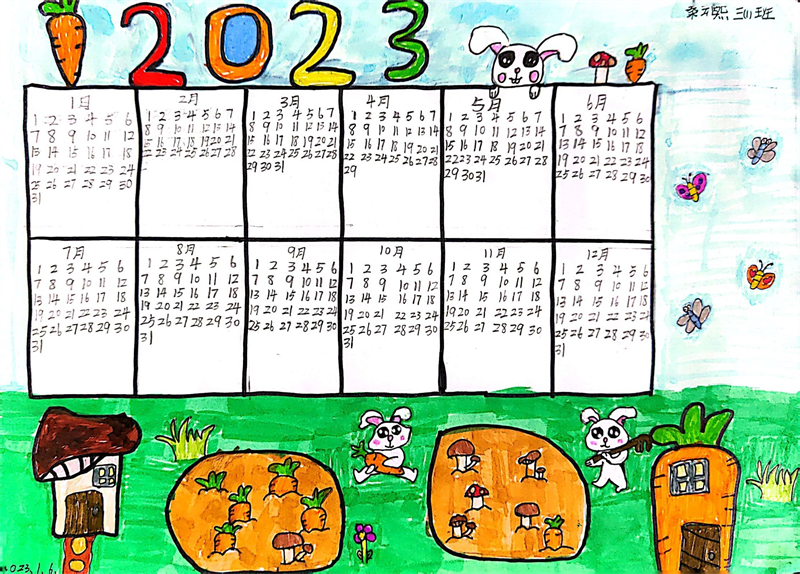 2023
熙 三(1)班
1月
1 2 3 4 5 6
7 8 9 10 11 12
13 14 15 16 17 18
19 20 21 22 23 24
25 26 27 28 29 30
31
2月
1 2 3 4 5 6 7
8 9 10 11 12 13 14
15 16 17 18 19 20 21
22 23 24 25 26 27 28
3月
1 2 3 4 5 6 7
8 9 10 11 12 13 14
15 16 17 18 19 20 21
22 23 24 25 26 27 28
29 30 31
4月
1 2 3 4 5 6 7
8 9 10 11 12 13 14
15 16 17 18 19 20 21
22 23 24 25 26 27 28
29
5月
1 2 3 4 5 6 7
8 9 10 11 12 13 14
15 16 17 18 19 20 21
22 23 24 25 26 27 28
29 30 31
6月
1 2 3 4 5 6
7 8 9 10 11 12
13 14 15 16 17 18
19 20 21 22 23 24
25 26 27 28 29 30
7月
1 2 3 4 5 6
7 8 9 10 11 12
13 14 15 16 17 18
19 20 21 22 23 24
25 26 27 28 29 30
31
8月
1 2 3 4 5 6
7 8 9 10 11 12
13 14 15 16 17 18
19 20 21 22 23 24
25 26 27 28 29 30
31
9月
1 2 3 4 5 6
7 8 9 10 11 12
13 14 15 16 17 18
19 20 21 22 23 24
25 26 27 28 29 30
10月
1 2 3 4 5 6
7 8 9 10 11 12
13 14 15 16 17 18
19 20 21 22 23 24
25 26 27 28 29 30
31
11月
1 2 3 4 5 6
7 8 9 10 11 12
13 14 15 16 17 18
19 20 21 22 23 24
25 26 27 28 29 30
12月
1 2 3 4 5 6
7 8 9 10 11 12
13 14 15 16 17 18
19 20 21 22 23 24
25 26 27 28 29 30
31
2023.1.6.